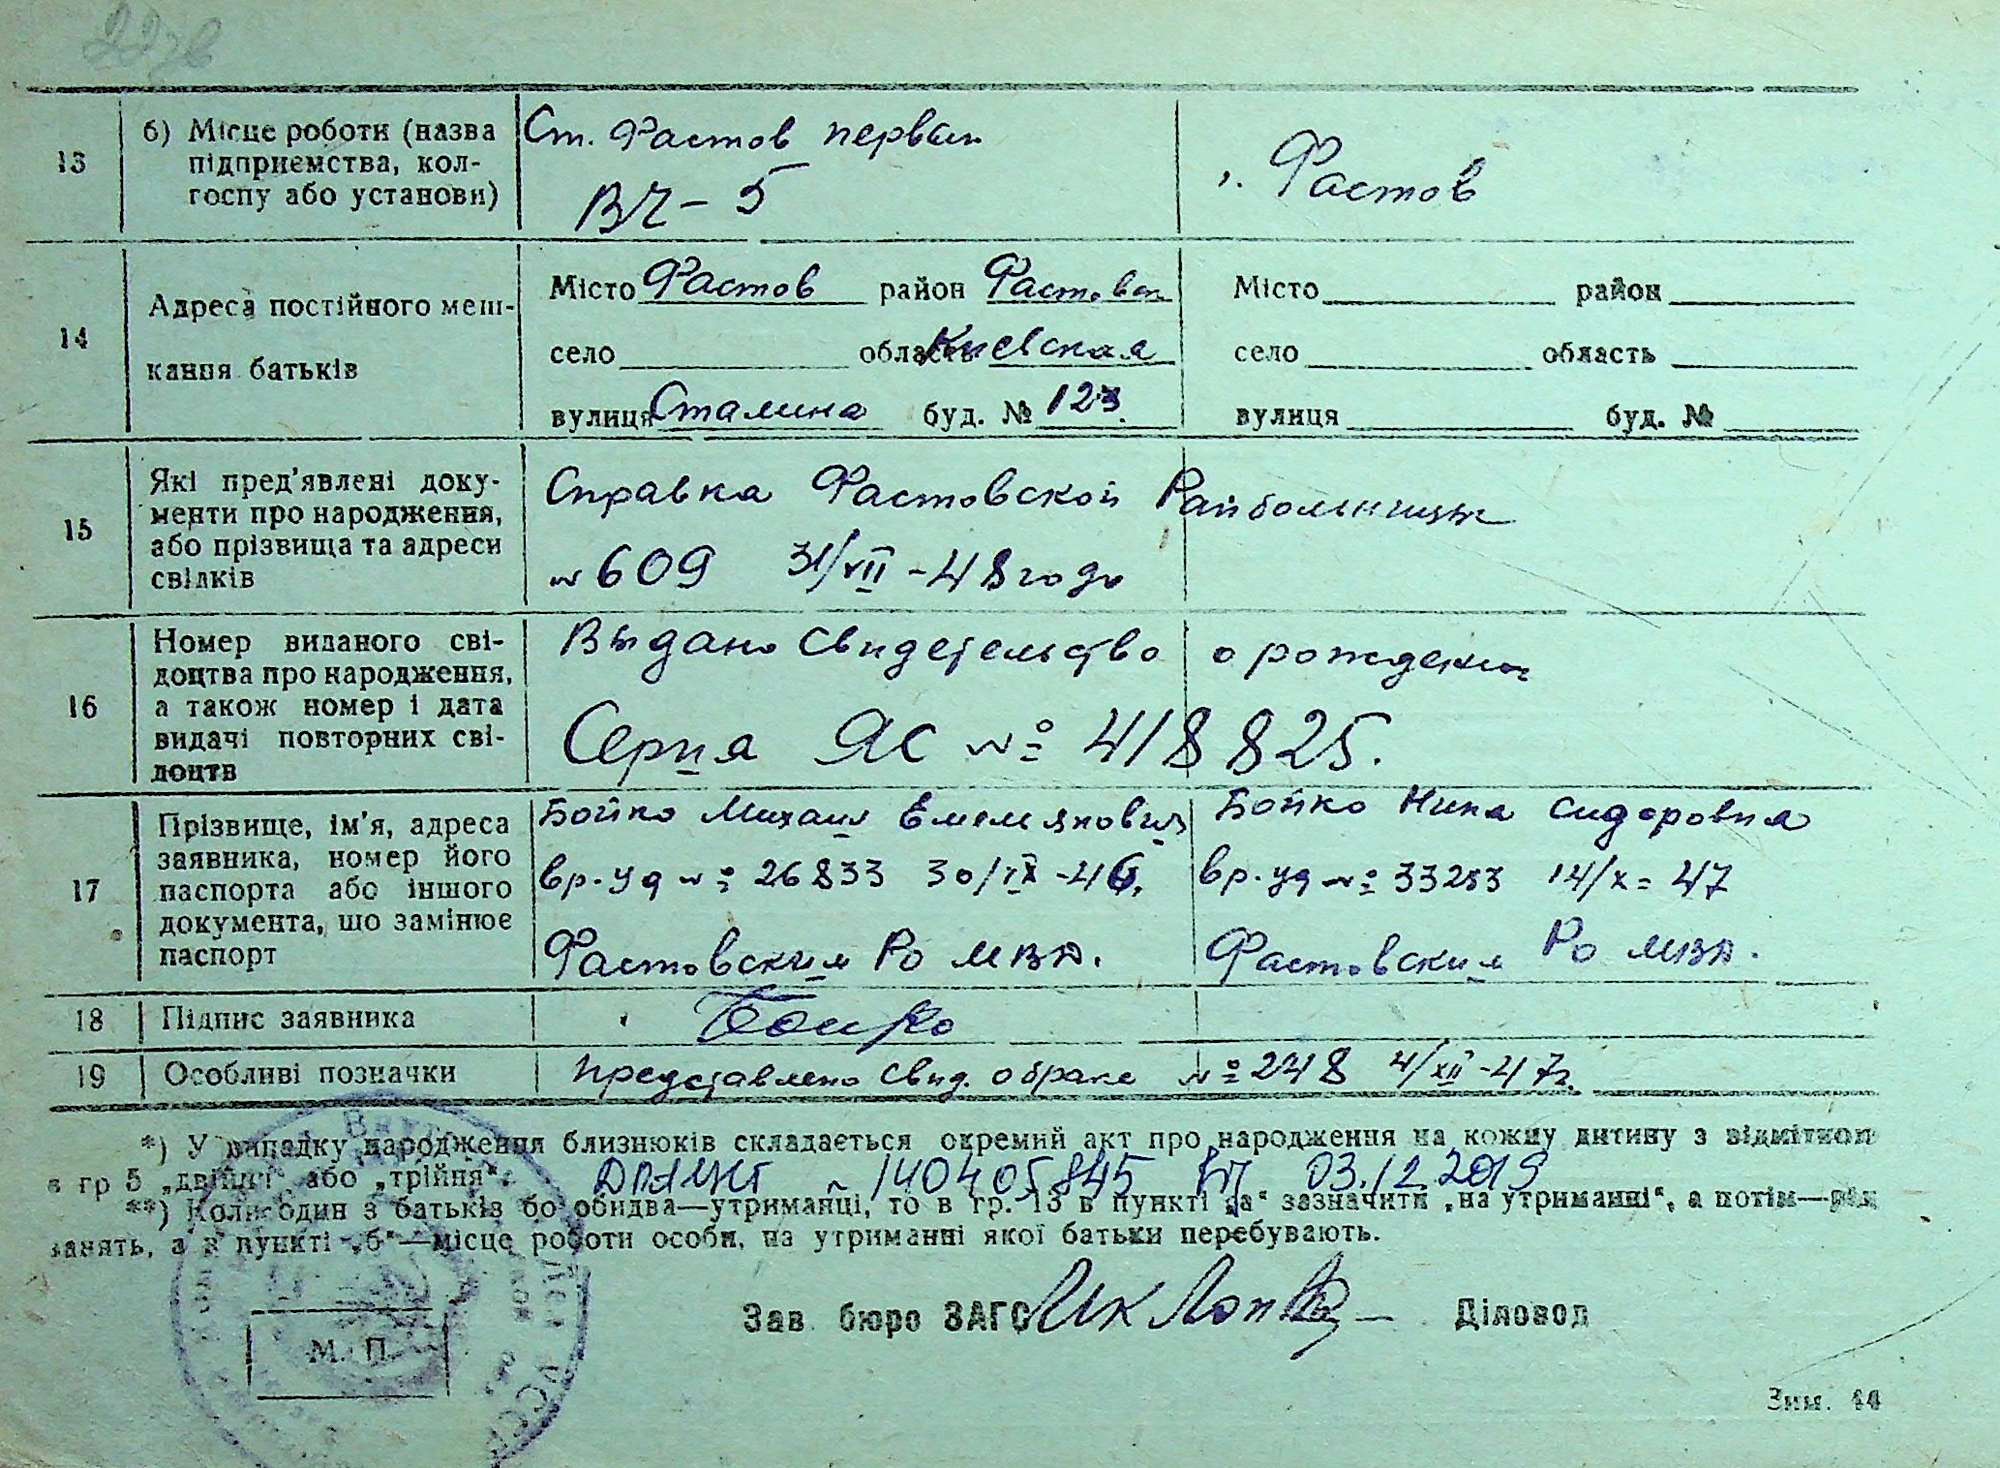 227в
13
б) Місце роботи (назва
підприємства, кол-
госпу або установи)
Ст. Фастов первая
ВЧ – 5
г. Фастов
14
Адреса постійного меш-
кання батьків
Місто Фастов район Фастовск
село область Киевская
вулиця Сталина буд. № 123.
Місто район
село область
вулиця буд. №
15
Які пред'явлені доку-
менти про народження,
або прізвища та адреси
свідків
Справка Фастовской Райбольницы
№ 609 31/VII – 48 года
16
Номер виданого сві-
доцтва про народження,
а також номер і дата
видачі повторних сві-
доцтв
Выдано Свидетельство о рождении
Серия ЯС № 418825.
17
Прізвище, ім'я, адреса
заявника, номер його
паспорта або іншого
документа, що замінює
паспорт
Бойко Михаил Емельянович
вр. уд № 26833 30/IX – 46.
Фастовским РО МВД.
Бойко Нина Сидоровна
вр. уд № 33253 14/X = 47
Фастовским РО МВД.
18
Підпис заявника
Бойко
19
Особливі позначки
представлено свид. о браке № 248 4/XII – 47г.
*) У випадку народження близнюків складається окремий акт про народження на кожну дитину з відміткою
в гр 5 „двійня" або „трійня".
140405845 03.12.2019
**) Коли один з батьків бо обидва—утриманці, то в гр. 13 в пункті „а" зазначити „на утриманні", а потім—рід
занять, а в пункті „б"—місце роботи особи, на утриманні якої батьки перебувають.
М. П.
Зав бюро ЗАГС
Діловод
Зам. 44